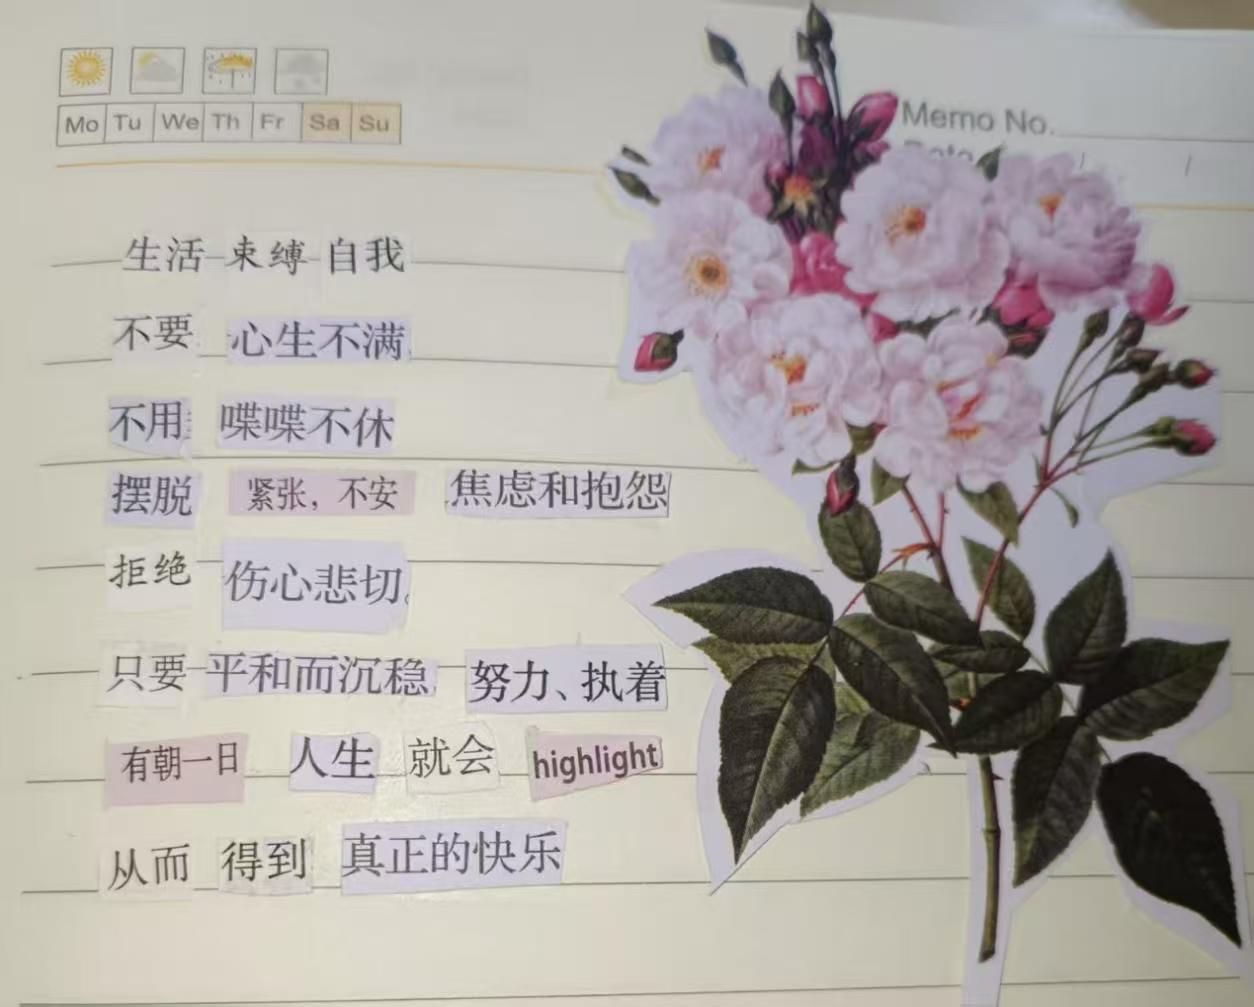 Mo Tu We Th Fr Sa Su
Memo No.
Date / /
生活 束缚 自我
不要 心生不满
不用 喋喋不休
摆脱 紧张，不安 焦虑和抱怨
拒绝 伤心悲切。
只要 平和而沉稳 努力、执着
有朝一日 人生 就会 highlight
从而 得到 真正的快乐